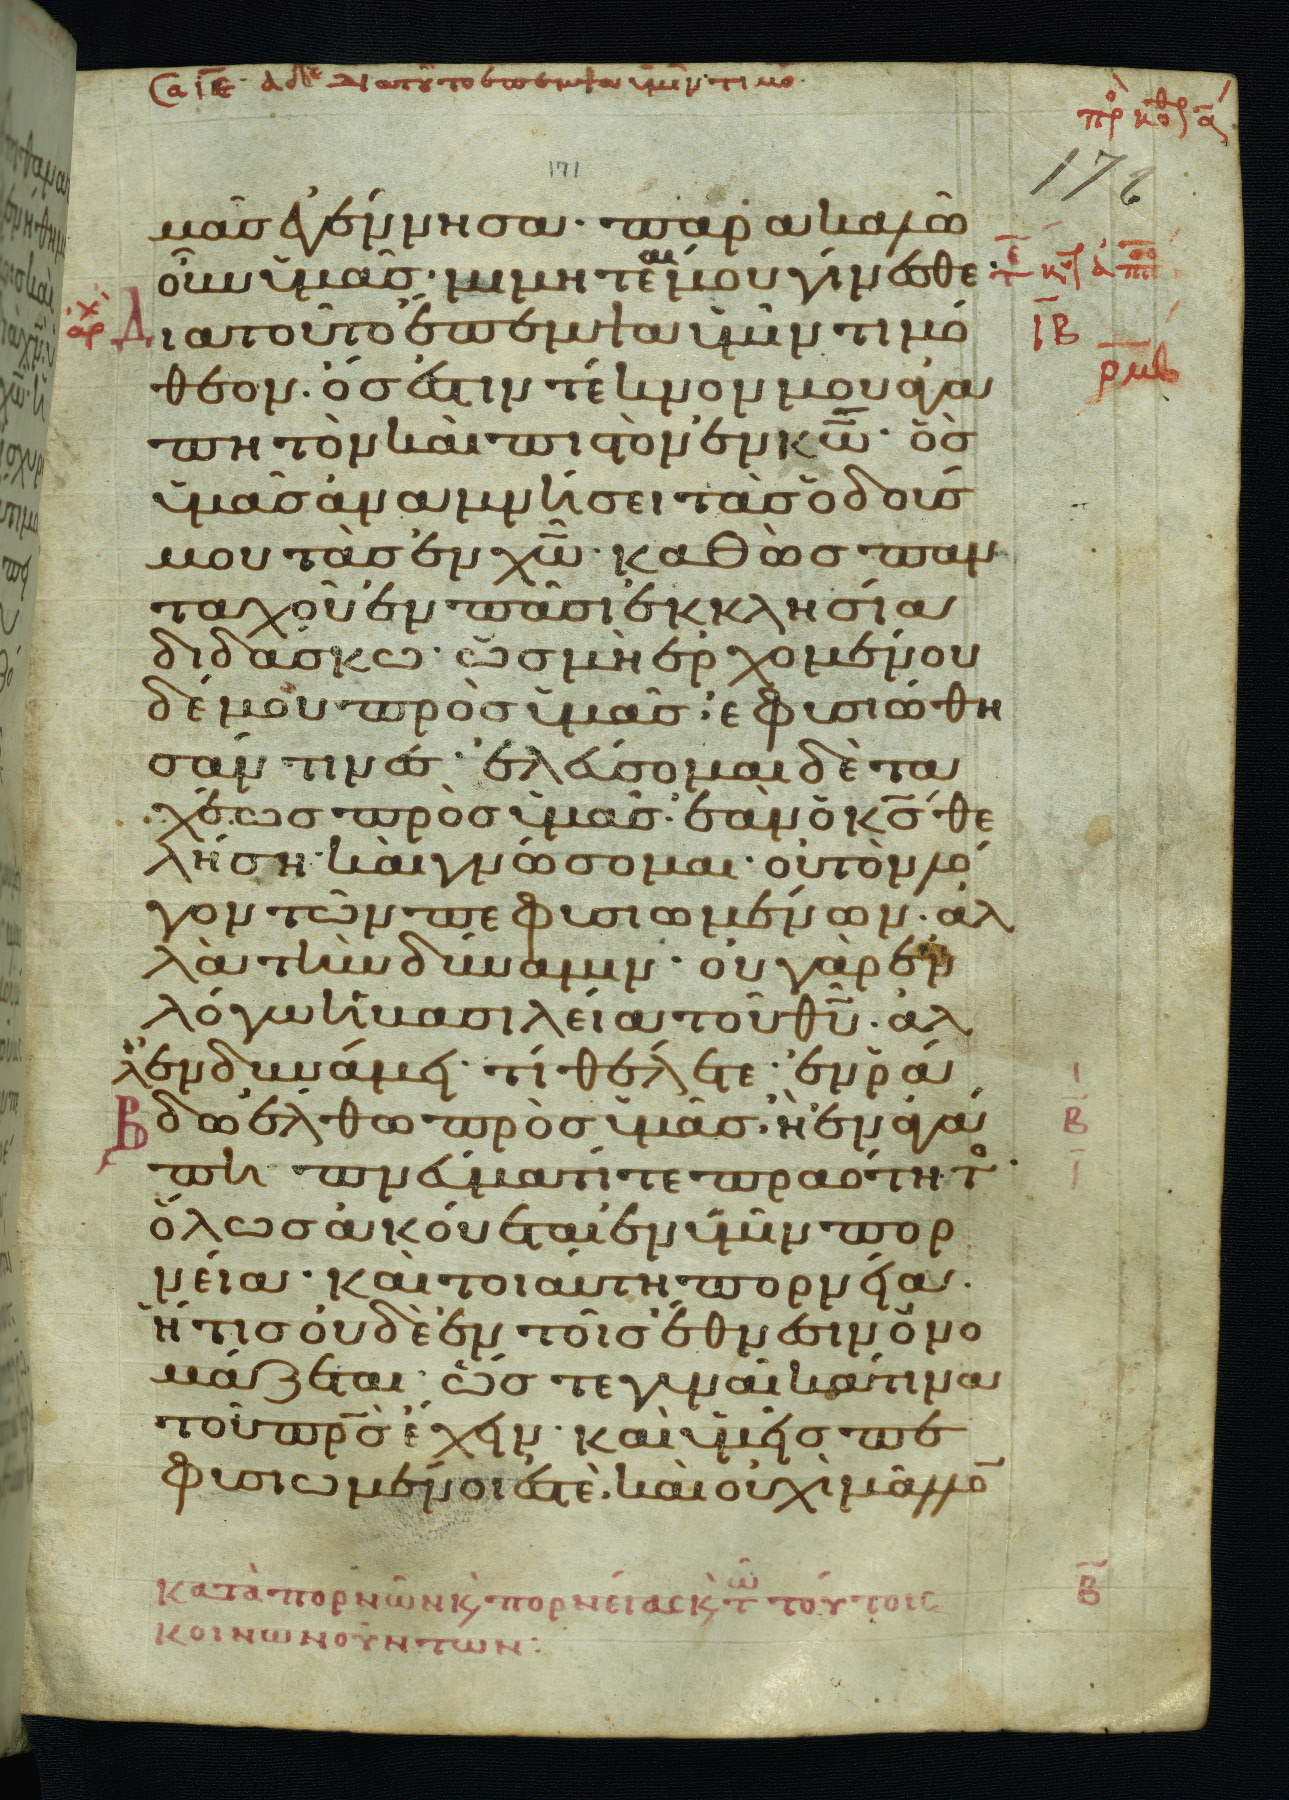 Διατοῦτο ἔπεμψα ὑμῖν τιμό
πρ κορ α
171
176
μᾶς ἐγέννησα· παρακαλῶ
οὖν ὑμᾶς· μιμηταί μου γίνεσθε·
Διατοῦτο ἔπεμψα ὑμῖν τιμό
ιβ
θεον· ὅς ἐστιν τέκνον μου ἀγα
ρμβ
πητὸν καὶ πιστὸν ἐν κω· ὃς
ὑμᾶς ἀναμνήσει τὰς ὁδούς
μου τὰς ἐν χω· καθὼς παν
ταχοῦ ἐν πάσι ἐκκλησία
διδάσκω· ὡς μὴ ἐρχομένου
δέ μου πρὸς ὑμᾶς· ἐφυσιώθη
σάν τινες· ἐλεύσομαι δὲ τα
χέως πρὸς ὑμᾶς· ἐὰν ὁ κς θε
λήση· καὶ γνώσομαι· οὐ τὸν λό
γον τῶν πεφυσιωμένων· ἀλ
λὰ τὴν δύναμιν· οὐ γὰρ ἐν
λόγω ἡ βασιλεία τοῦ θυ· ἀλ
λ ἐν δυνάμει· τί θέλετε· ἐν ρά
Βδω ἔλθω πρὸς ὑμᾶς· ἢ ἐν ἀγά
πη πνεύματί τε πραότητο·
ὅλως ἀκούεται ἐν ὑμῖν πορ
νεία· καὶ τοιαύτη πορνεία·
ἥτις οὐδὲ ἐν τοῖς ἔθνεσιν ὀνο
μάζεται· ὥστε γυναῖκά τινα
τοῦ πρς ἔχειν· καὶ ὑμεῖς πε
φυσιωμένοι ἐστέ· καὶ οὐχὶ μᾶλλο
κατὰ πορνῶν κ πορνείας κ τῶ τούτοις
Β
κοινωνούντων: